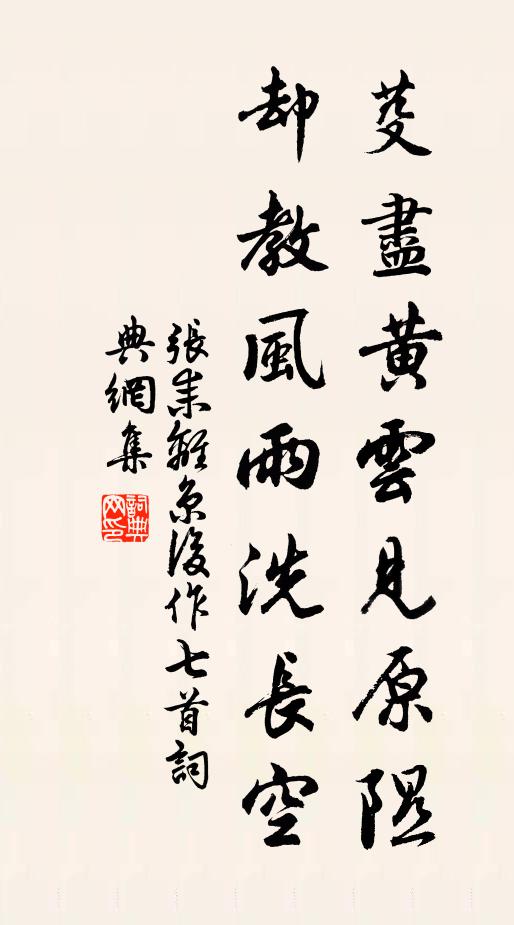 芟盡黃雲見原隰
却教風雨洗長空
張耒離京後作七首詞
典網集
詞典網印